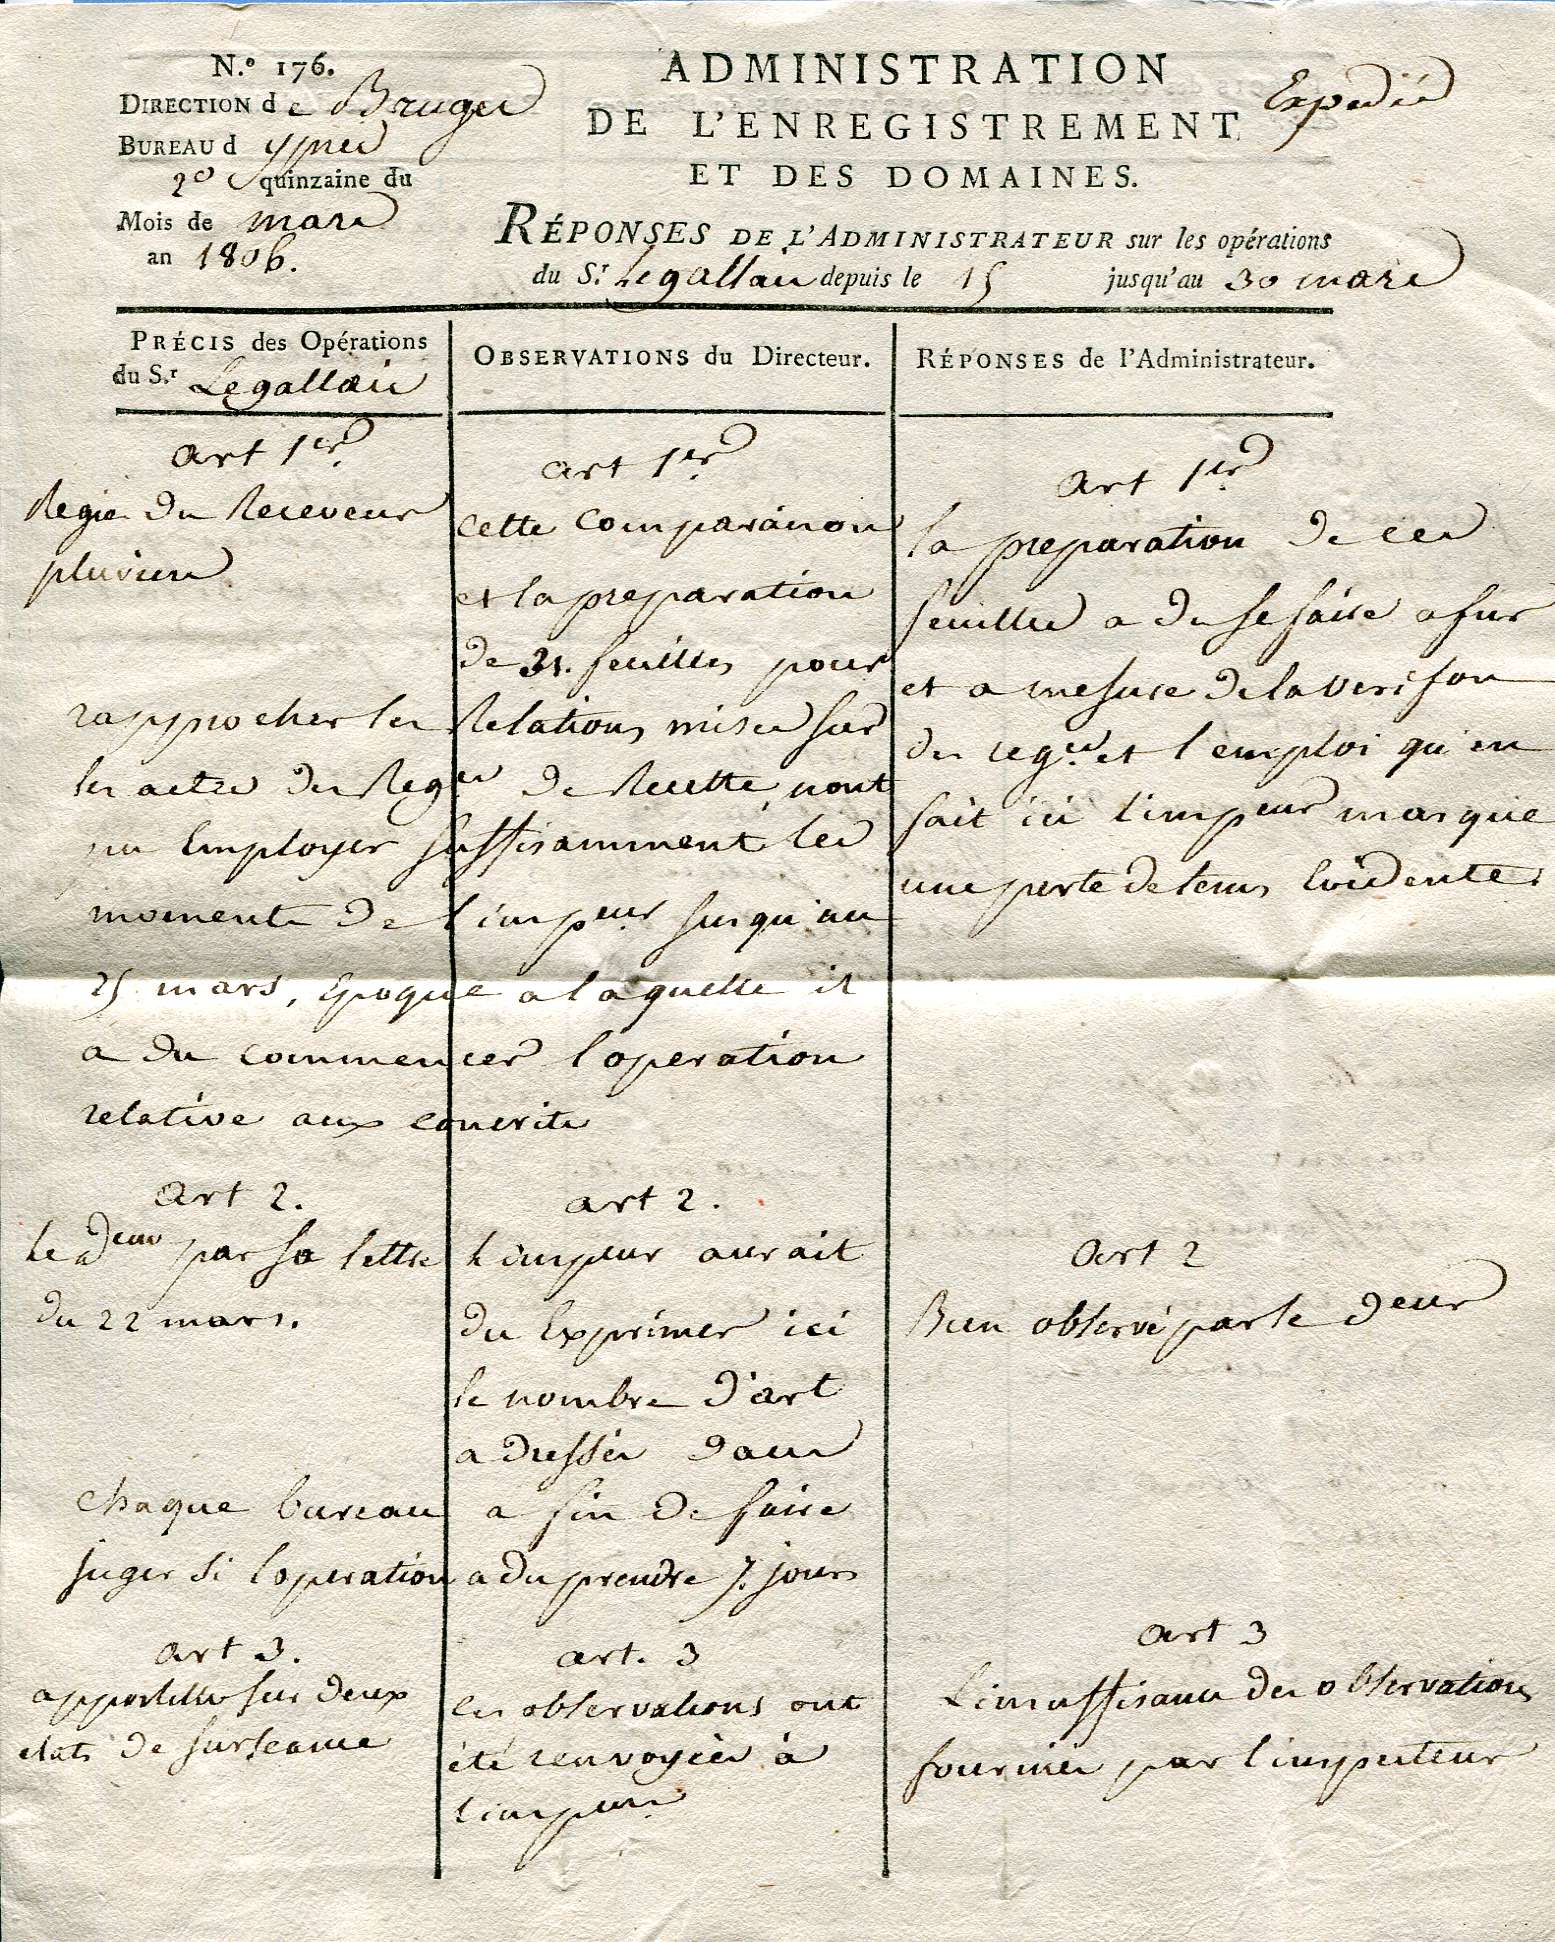 N.º 176.
DIRECTION de Bruges
BUREAU d ypres
2e quinzaine du
Mois de mars
an 1806.
ADMINISTRATION
DE L'ENREGISTREMENT
ET DES DOMAINES.
Expedié
RÉPONSES DE L'ADMINISTRATEUR sur les opérations
du S.r Legallais depuis le 15 jusqu'au 30 mars
PRÉCIS des Opérations
du S.r Legallais
art 1er.
Regie du Receveur
art 2.
Le deur par sa lettre
du 22 mars.
art 3.
apostilles sur deux
etats de surseance
OBSERVATIONS du Directeur.
art 1er.
cette comparaison
et la preparation
de 31. feuilles pour
rapprocher les Relations mises sur
les actes des Regres de Recette, n'ont
pu Employer suffisamment les
moments de l'inspeur jusqu'au
25 mars, Epoque a laquelle il
a du commencer l'operation
relative aux conscrits
art 2.
L'inspeur aurait
du Exprimer ici
le nombre d'art
adressés dans
chaque bureau a fin de faire
juger si l'operation a du prendre 7. jours
art. 3
les observations ont
été renvoyées à
l'inspeur
RÉPONSES de l'Administrateur.
Art 1er.
la preparation de ces
feuilles a du se faire a fur
et a mesure de la verifon
des regres. et l'emploi qu'en
fait ici l'inspeur marque
une perte de tems Evidente.
Art 2
Bien observé par le deur
art 3
L'insuffisance des observations
fournies par l'inspecteur